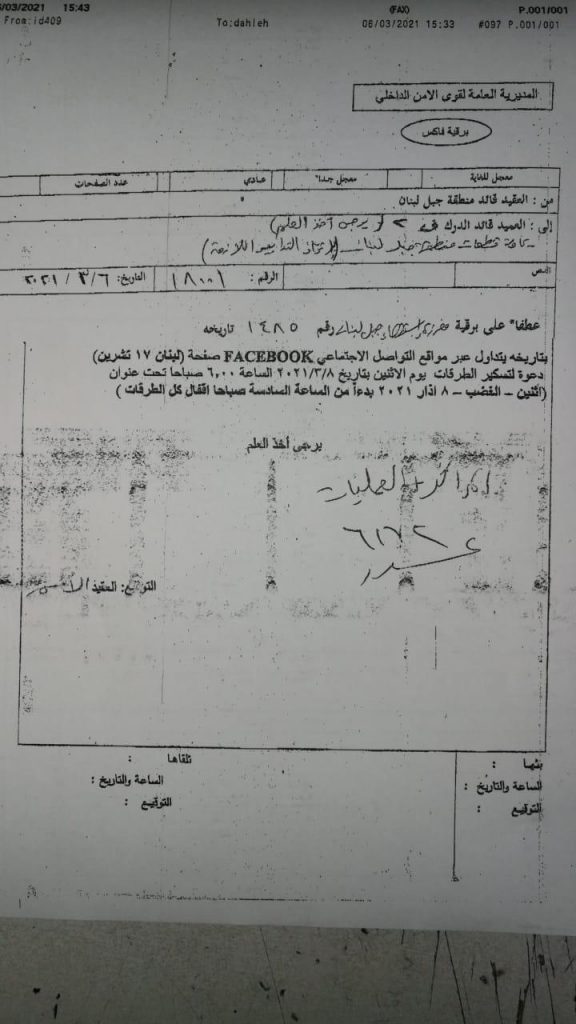 6/03/2021 15:43 (FAX) P.001/001
From:id409 To:dahleh 06/03/2021 15:33 #097 P.001/001
المديرية العامة لقوى الامن الداخلي
برقية فاكس
معجل للغاية معجل جدا" عادي عدد الصفحات
من : العقيد قائد منطقة جبل لبنان
إلى : العميد قائد الدرك يرجى أخذ العلم)
منطقة جبل لبنان
النص الرقم : التاريخ: ٢٠٢١/٣/٦
عطفا" على برقية جبل لبنان رقم ١٤٨٥ تاريخه
بتاريخه يتداول عبر مواقع التواصل الاجتماعي FACEBOOK صفحة (لبنان ١٧ تشرين)
دعوة لتسكير الطرقات يوم الاثنين بتاريخ ٢٠٢١/٣/٨ الساعة ٦,٠٠ صباحا تحت عنوان
(اثنين – الغضب – ٨ اذار ٢٠٢١ بدءاً من الساعة السادسة صباحا اقفال كل الطرقات )
يرجى أخذ العلم
العمليات
٦١٧٢
التوقيع: العقيد
بثها :
الساعة والتاريخ :
التوقيع :
تلقاها :
الساعة والتاريخ :
التوقيع :